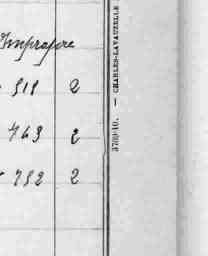 Impropre
518 2
743 2
752 2
3789-10. — CHARLES-LAVAUZELLE